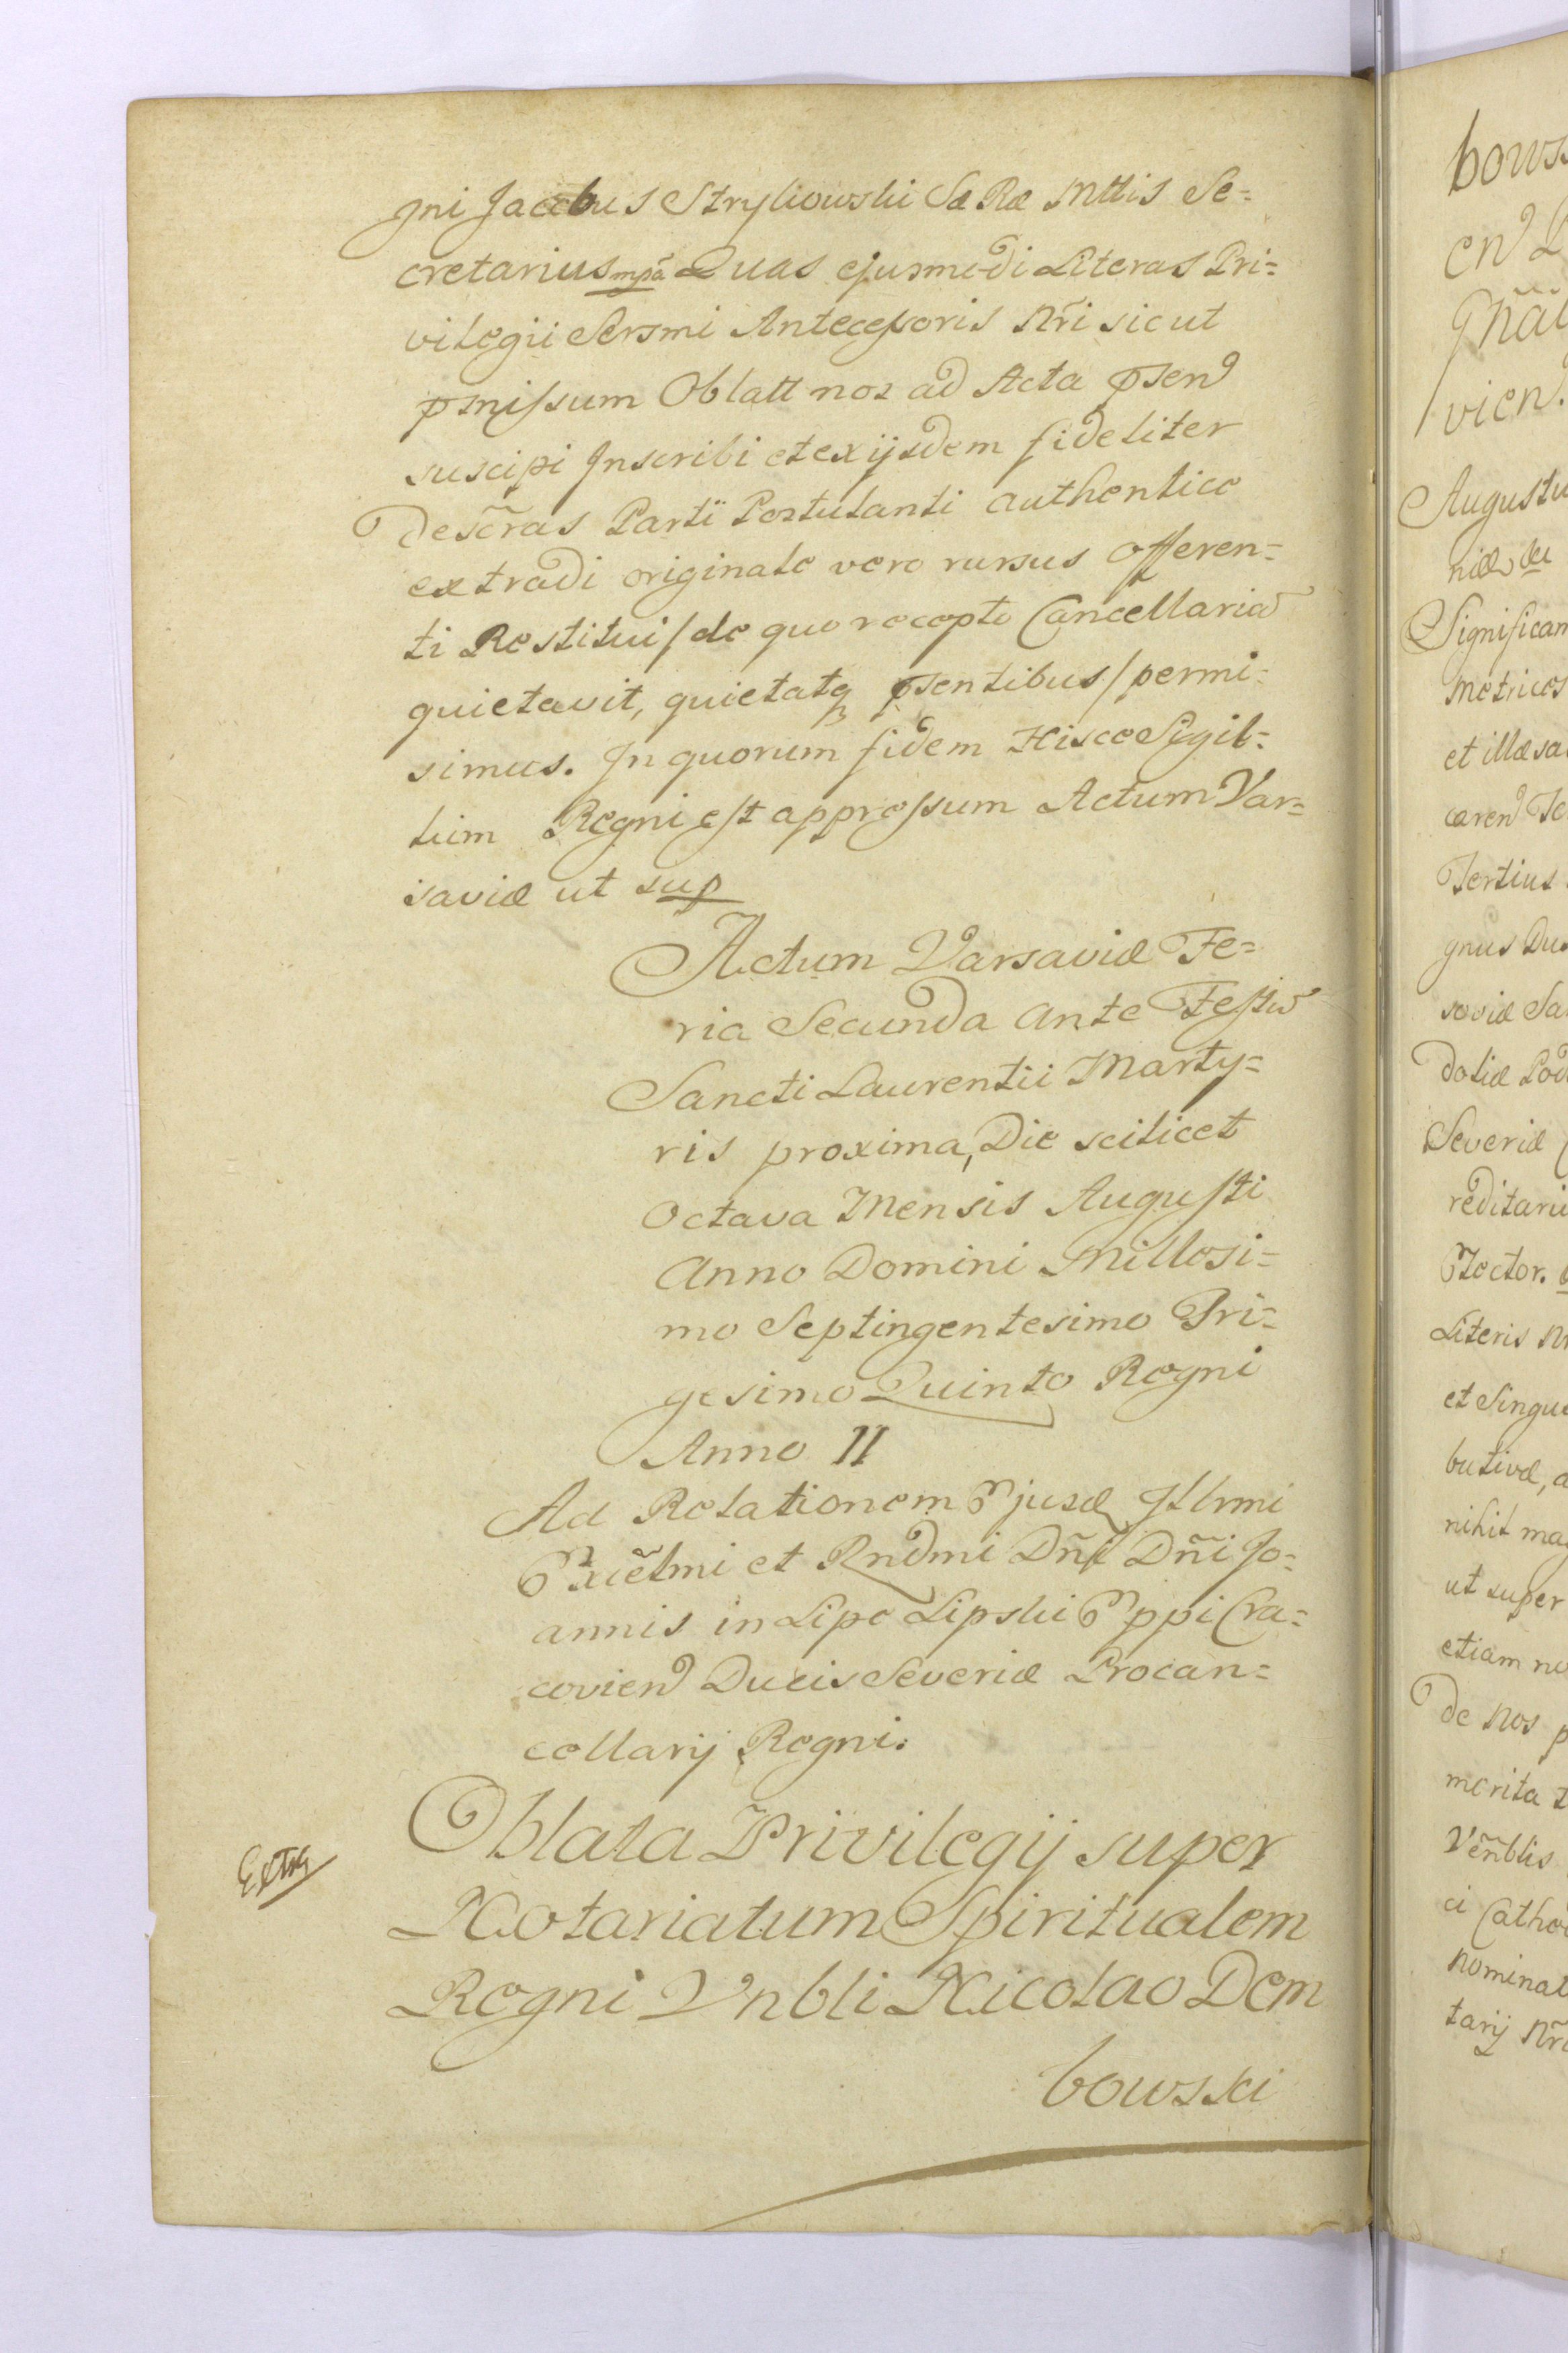 gni Jacobus Strykowski Sæ Ræ Mttis Se=
cretarius mpã Quas ejusmodi Literas Pri=
vilegii Sersmi Antecessoris Nr̃i sicut
pmissum Oblatt nos ad Acta psen
suscipi Inscribi et ex ijsdem fideliter
descr̃as Parti Postulanti authentice
extradi originale vero rursus offeren=
ti Restitui/de quo recepto Cancellaria
quietavit, quietatq psentibus/permi=
simus. In quorum fidem Hisce Sigil=
lum Regni est appressum Actum Var=
saviæ ut sup
Actum Varsaviæ Fe=
ria Secunda ante Festu
Sancti Laurentii Marty=
ris proxima, Die scilicet
Octava Mensis Augusti
Anno Domini Millesi=
mo Septingentesimo Tri=
gesimo Quinto Regni
Anno II
Ad Relationem Ejusd Illrmi
Excel̃mi et Rndmi Dñi Dñi Jo=
annis in Lipe Lipski Eppi Cra=
covien Ducis Severiæ Procan=
cellarij Regni.
Oblata Privilegij super
Notariatum Spiritualem
Regni Vnbli Nicolao Dem
bowski
Extra
bows
en
vien.
Augustu
niæ
Significam
metrices
et illæsa
caren
Tertius
gnus Du
saviæ Sa
doliæ Pod
Severiæ
reditariu
Elector.
Literis Nr
et Singu
butivæ, a
nihil ma
ut super
etiam no
De nos p
merita
Ven̄blis
ci Catho
nominat
tarij Nr̃i